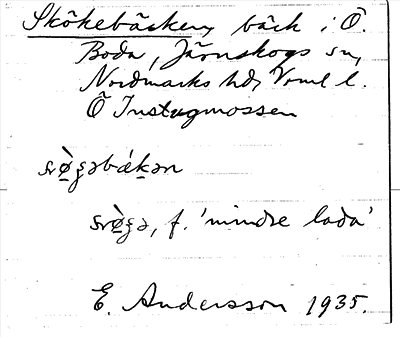 Skökebäcken, bäck i Ö.
Boda, Järnskogs sn,
Nordmarks hd, Vrml l.
Ö Instugmossen
f. 'mindre lada'
E. Andersson 1935.